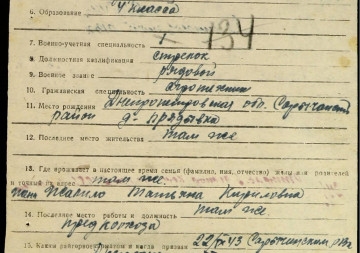 6. Образование 4 класса
134
7. Военно-учетная специальность
8. Должностная квалификация стрелок
9. Военное звание рядовой
10. Гражданская специальность
11. Место рождения Днепропетровская обл.
район д.
12. Последнее место жительства там же
13. Где проживает в настоящее время семья (фамилия, имя, отчество) жены или родителей
и точный их адрес там же.
Татьяна Кириловна
14. Последнее место работы и должность там же.
пред колхоза
15. Каким райвоенкоматом и когда призван 22/IX 43